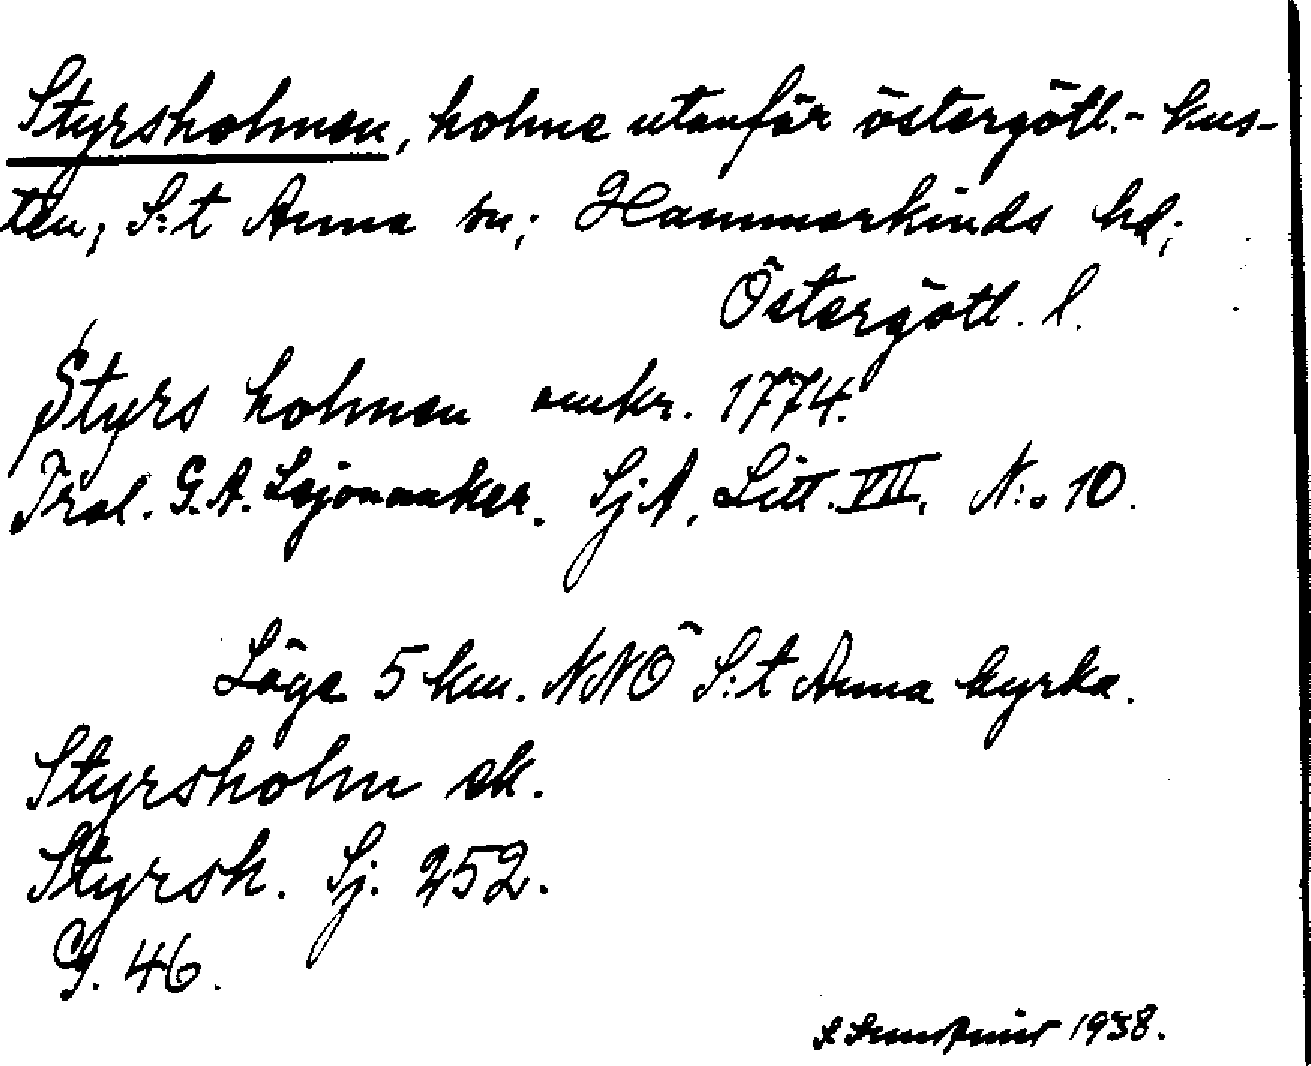 Styrsholmen, holme utanför östergötl.- kus-
ten, S:t Anna sn; Hammarkinds hd;
Östergötl. l.
Styrs holmen omkr. 1774.
Trol. G. A. Lejonanker. SjA, Litt. VII. N:o 10.
Läge 5 km. NNÖ S:t Anna kyrka.
Styrsholm ek.
Styrsh. Sj. 252.
G. 46.
1938.